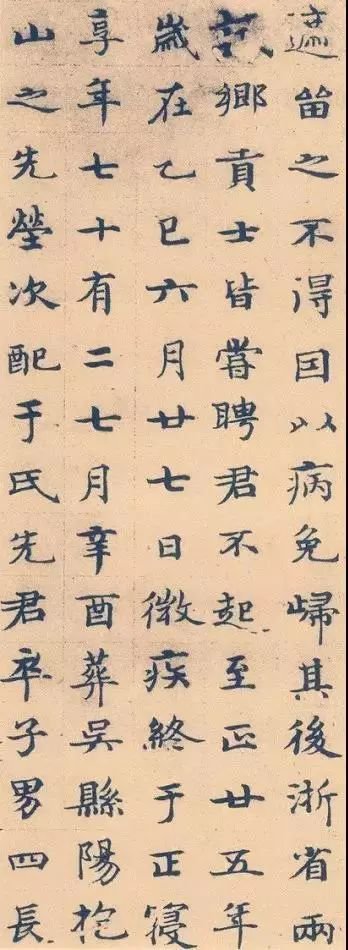 留之不得因以病免歸其後浙省兩
試鄉貢士皆嘗聘君不起至正廿五年
歲在乙巳六月廿七日微疾終于正寢
享年七十有二七月辛酉葬吳縣陽抱
山之先塋次配于氏先君卒子男四長